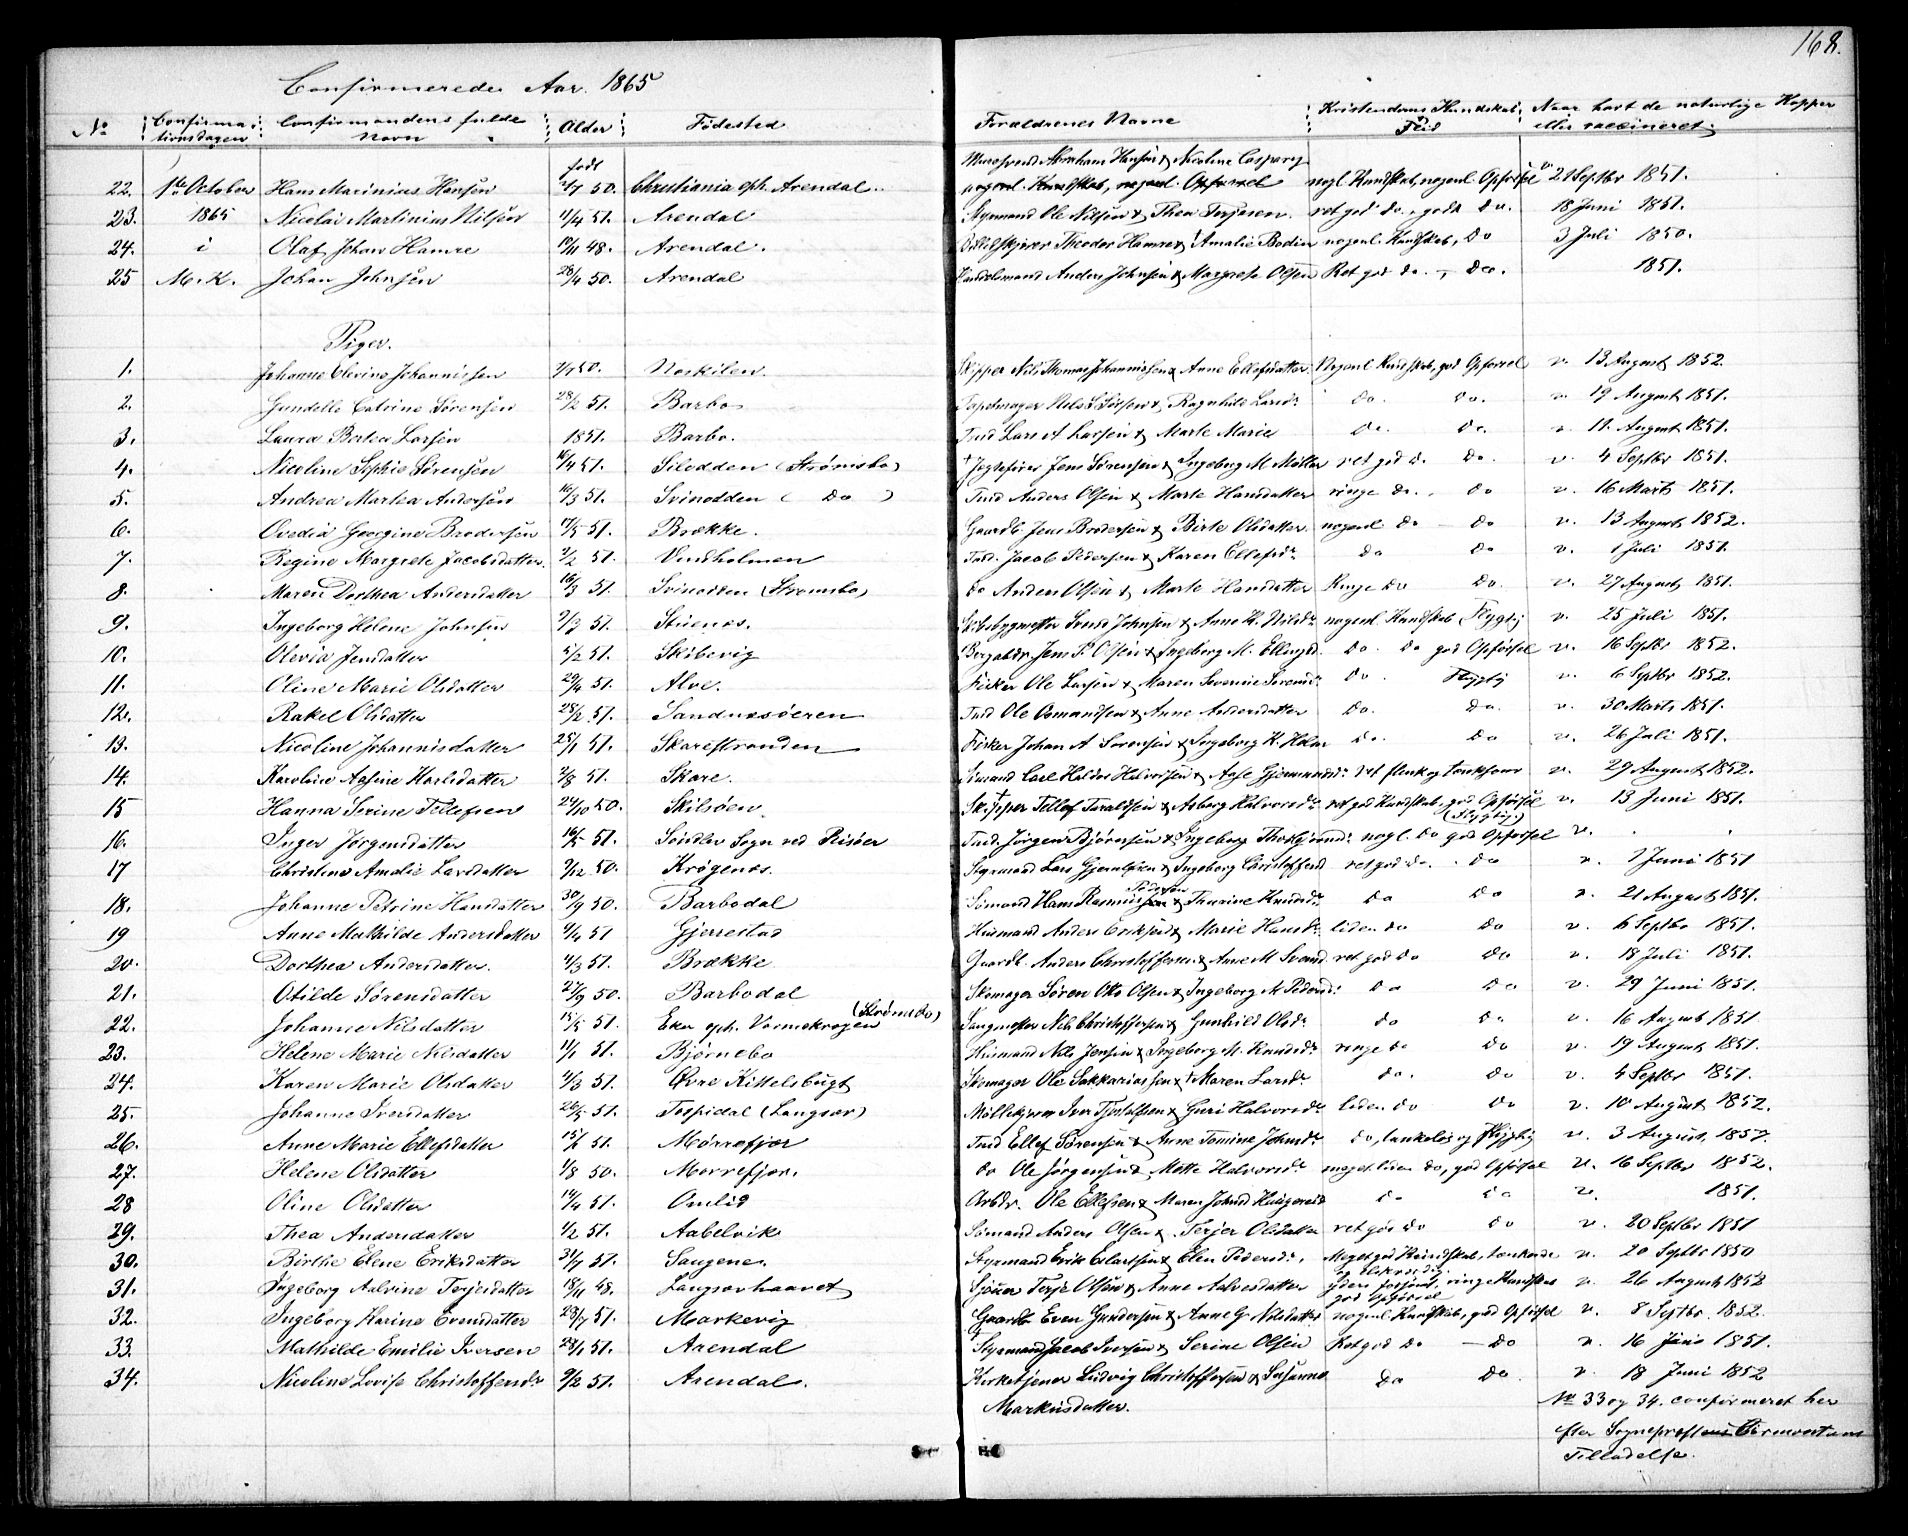 168.
Confirmerede Aar. 1865
No Confirmationsdagen Confirmandens fulde Navn Alder Fødested Forældrenes Navne Kristendoms Kundskab Flid Naar havt de naturlige Kopper eller vaccineret
født Abraham Hansen & Nicoline
22. 1ste October Hans Marinius Hansen 50. Christiania oph. Arendal. nogl. Kundskab, nogenl. Opførsel 21 Septbr 1851.
23. 1865 Nicolai Martinius Nilsen 11/4 51. Arendal Styrmand Ole Nilsen & Thea Terjesen. ret god do., godt do. 18 Juni 1851.
24. i Olaf Johan Hamre 48. Arendal. Theodor Hamre & Amalie Bodin nogenl. Kundskab, do 3 Juli 1850.
25 M. K. Johan Johnsen 28/4 50. Arendal Anders Johnsen & Margrete Olsen Ret god do. - do. 1851.
Piger.
1. Johanne Elevine Johannissen 50. Neskilen. Skipper Nils Thomas Johannissen & Anne Ellefsdatter Nogenl Kundskab, god Opførsel v. 13 August 1852.
2. Gundelle Catrine Sørensen 28/2 51. Barbo Nils S Sørensen & Ragnhild Larsdr do. do. v. 19 August 1851.
3. Laura Bertea Larsen 1851. Barbo. Lars A Larsen & Marte Marie do. do. v. 11. August 1851.
4. Nicoline Sophie Sørensen 51. Silodden (Strømsbo) Jens Sørensen & Ingeborg M Møller ret god do. do. v. 4 Septbr 1851.
5. Andrea Martea Andersen 16/3 51. Svinodden ( do ) Anders Olsen & Marte Hansdatter ringe do., do v. 16 Marts 1851.
6. Ovedia Georgine Brodersen 51. Brække. Gaardb. Jens Brodersen & Birte Olsdatter nogenl do - do v. 13 August 1852.
7. Regine Margrete Jacobsdatter. 2/2 51. Vindholmen Jacob Pedersen & Karen Ellefsdr do do v. 1 Juli 1851.
8. Maren Dorthea Andersdatter 16/3 51. Svinodden (Strømsbo) do Anders Olsen & Marte Hansdatter Ringe do do. v. 27 August 1851.
9. Ingeborg Helene Johnsen 51. Stuenes. Skibsbygmester Svend Johnsen & Anne K. Nilsdr nogenl. Kundskab, Flygtig v. 25 Juli 1851.
10. Olevia Jensdatter 5/2 51. Skibevig Jens P. Olsen & Ingeborg M. do. do god Opførsel v. 16 Septbr 1852.
11. Oline Marie Olsdatter 29/4 51. Alve. Fisker Ole Larsen & Maren Severine Sørensdr do. Flygtig v. 6 Septbr 1852.
12. Rakel Olsdatter 28/2 51. Sandnesøeren Ole Osmundsen & Anne Andersdatter do. do. v. 30 Marts 1851.
13. Nicoline Johannisdatter 25/1 51. Skarestranden Fisker Johan A Sørensen & Ingeborg K. Holm do. do v. 26 Juli 1851.
14. Karoline Agsine Karlsdatter 51. Skare. Sømand Carl Haldor Halvorsen & ret flink og tænksom v. 29 August 1852.
15 Hanna Serine Tellefsen 50. Skilsøen. Skipper Tellef Taraldsen & Asborg Halvorsdr ret god Kundskab, god Opførsel v. 13 Juni 1851.
(Flygtig.)
16. Inger Jørgensdatter 51. Søndløv Sogn ved Risøer Jørgen Bjørnsen & Ingeborg nogl. do god Opførsel v.
17 Christine Amalie Larsdatter 50. Krøgenes. Styrmand Lars & Ingeborg Christoffersd ret god do. do v. 1 Juni 1851
18. Johanne Petrine Hansdatter 30/9 50. Barbodal Sømand Hans Rasmussen Pedersen & Thurine Knudsdr do do v. 21 August 1851.
19 Anne Mathilde Andersdatter 51 Gjerrestad Huusmand Anders Eriksen & Marie Hansdr liden do do v. 6 Septbr 1851.
20. Dorthea Andersdatter. 51. Brække Gaardb. Anders Christoffersen & Anne M Svend ret god do do v. 18 Juli 1851.
21. Otilde Sørensdatter 27/9 50. Barbodal Skomager Søren Otto Olsen & Ingeborg M Pedersd: do do v. 29 Juni 1851.
22. Johanne Nilsdatter 15/5 51. Eker oph. Varmekrogen (Strømsbo) Nils Christoffersen & Gunhild Olsdr do do v. 16 August 1851.
23. Helene Marie Nilsdatter 11/1 51. Bjørnebo Huusmand Nils Jensen & Ingeborg M. Knudsdr ringe do do v. 19 August 1851.
24. Karen Marie Olsdatter 51. Øvre Kittelsbugt Skomager Ole Sakkariassen & Maren Larsdr do. do v. 4 Septbr 1851.
25. Johanne Iversdatter 26/5 51. Tospidal (Langsæv) Iver Tjostolfsen & Guri Halvorsdr liden do do v. 10 August 1852.
26. Anne Marie Ellefsdatter 51. Mørrefjær Ellef Sørensen & Anne Tomine Johnsdr do, tankeløs og Flygtig v. 3 August, 1857.
27. Helene Olsdatter 1/8 50. Morrefjær. do Ole Jørgensen & Mette Halvorsdr meget liden do, god Opførsel v. 16 Septbr 1852.
28 Oline Olsdatter 51. Omlid Arbdr. Ole Ellefsen & Maren Johnsd do do v. 1851.
29. Thea Andersdatter 1/2 51. Aabelvik Sømand Anders Olsen & Terjer Olsdatter ret god do do v. 20 Septbr 1851
30. Birthe Elene Eriksdatter 31/7 51. Saugene. Styrmand Erik Eilertsen & Elen Pedersdr, Meget god Kundskab, tænkende v. 20 Septbr 1850
31. Ingeborg Aalvine Terjesdatter 18/11 48. Langsævhaavet Terje Olsen & Anne Aalvesdatter ringe Kundskab god Opførsel v. 26 August 1852
32. Ingeborg Karine Evensdatter 23/7 51. Markevig Gaardb Even Gundersen & Anne G Nilsdatter nogenl Kundskab, god Opførsel v. 8 Septbr. 1852.
33. Mathilde Emilie Iversen 51. Arendal Styrmand Jacob Iversen & Serine Olsen Ret god do - do v. 16 Juni 1851.
34. Nicoline Lovise Christoffersdr 9/2 51. Arendal. Kirketjener Ludvig Christoffersen & Susanne do do v. 18 Juni 1852
Markusdatter. No 33 og 34. confirmeret her
efter Sognepræstens
Tilladelse.